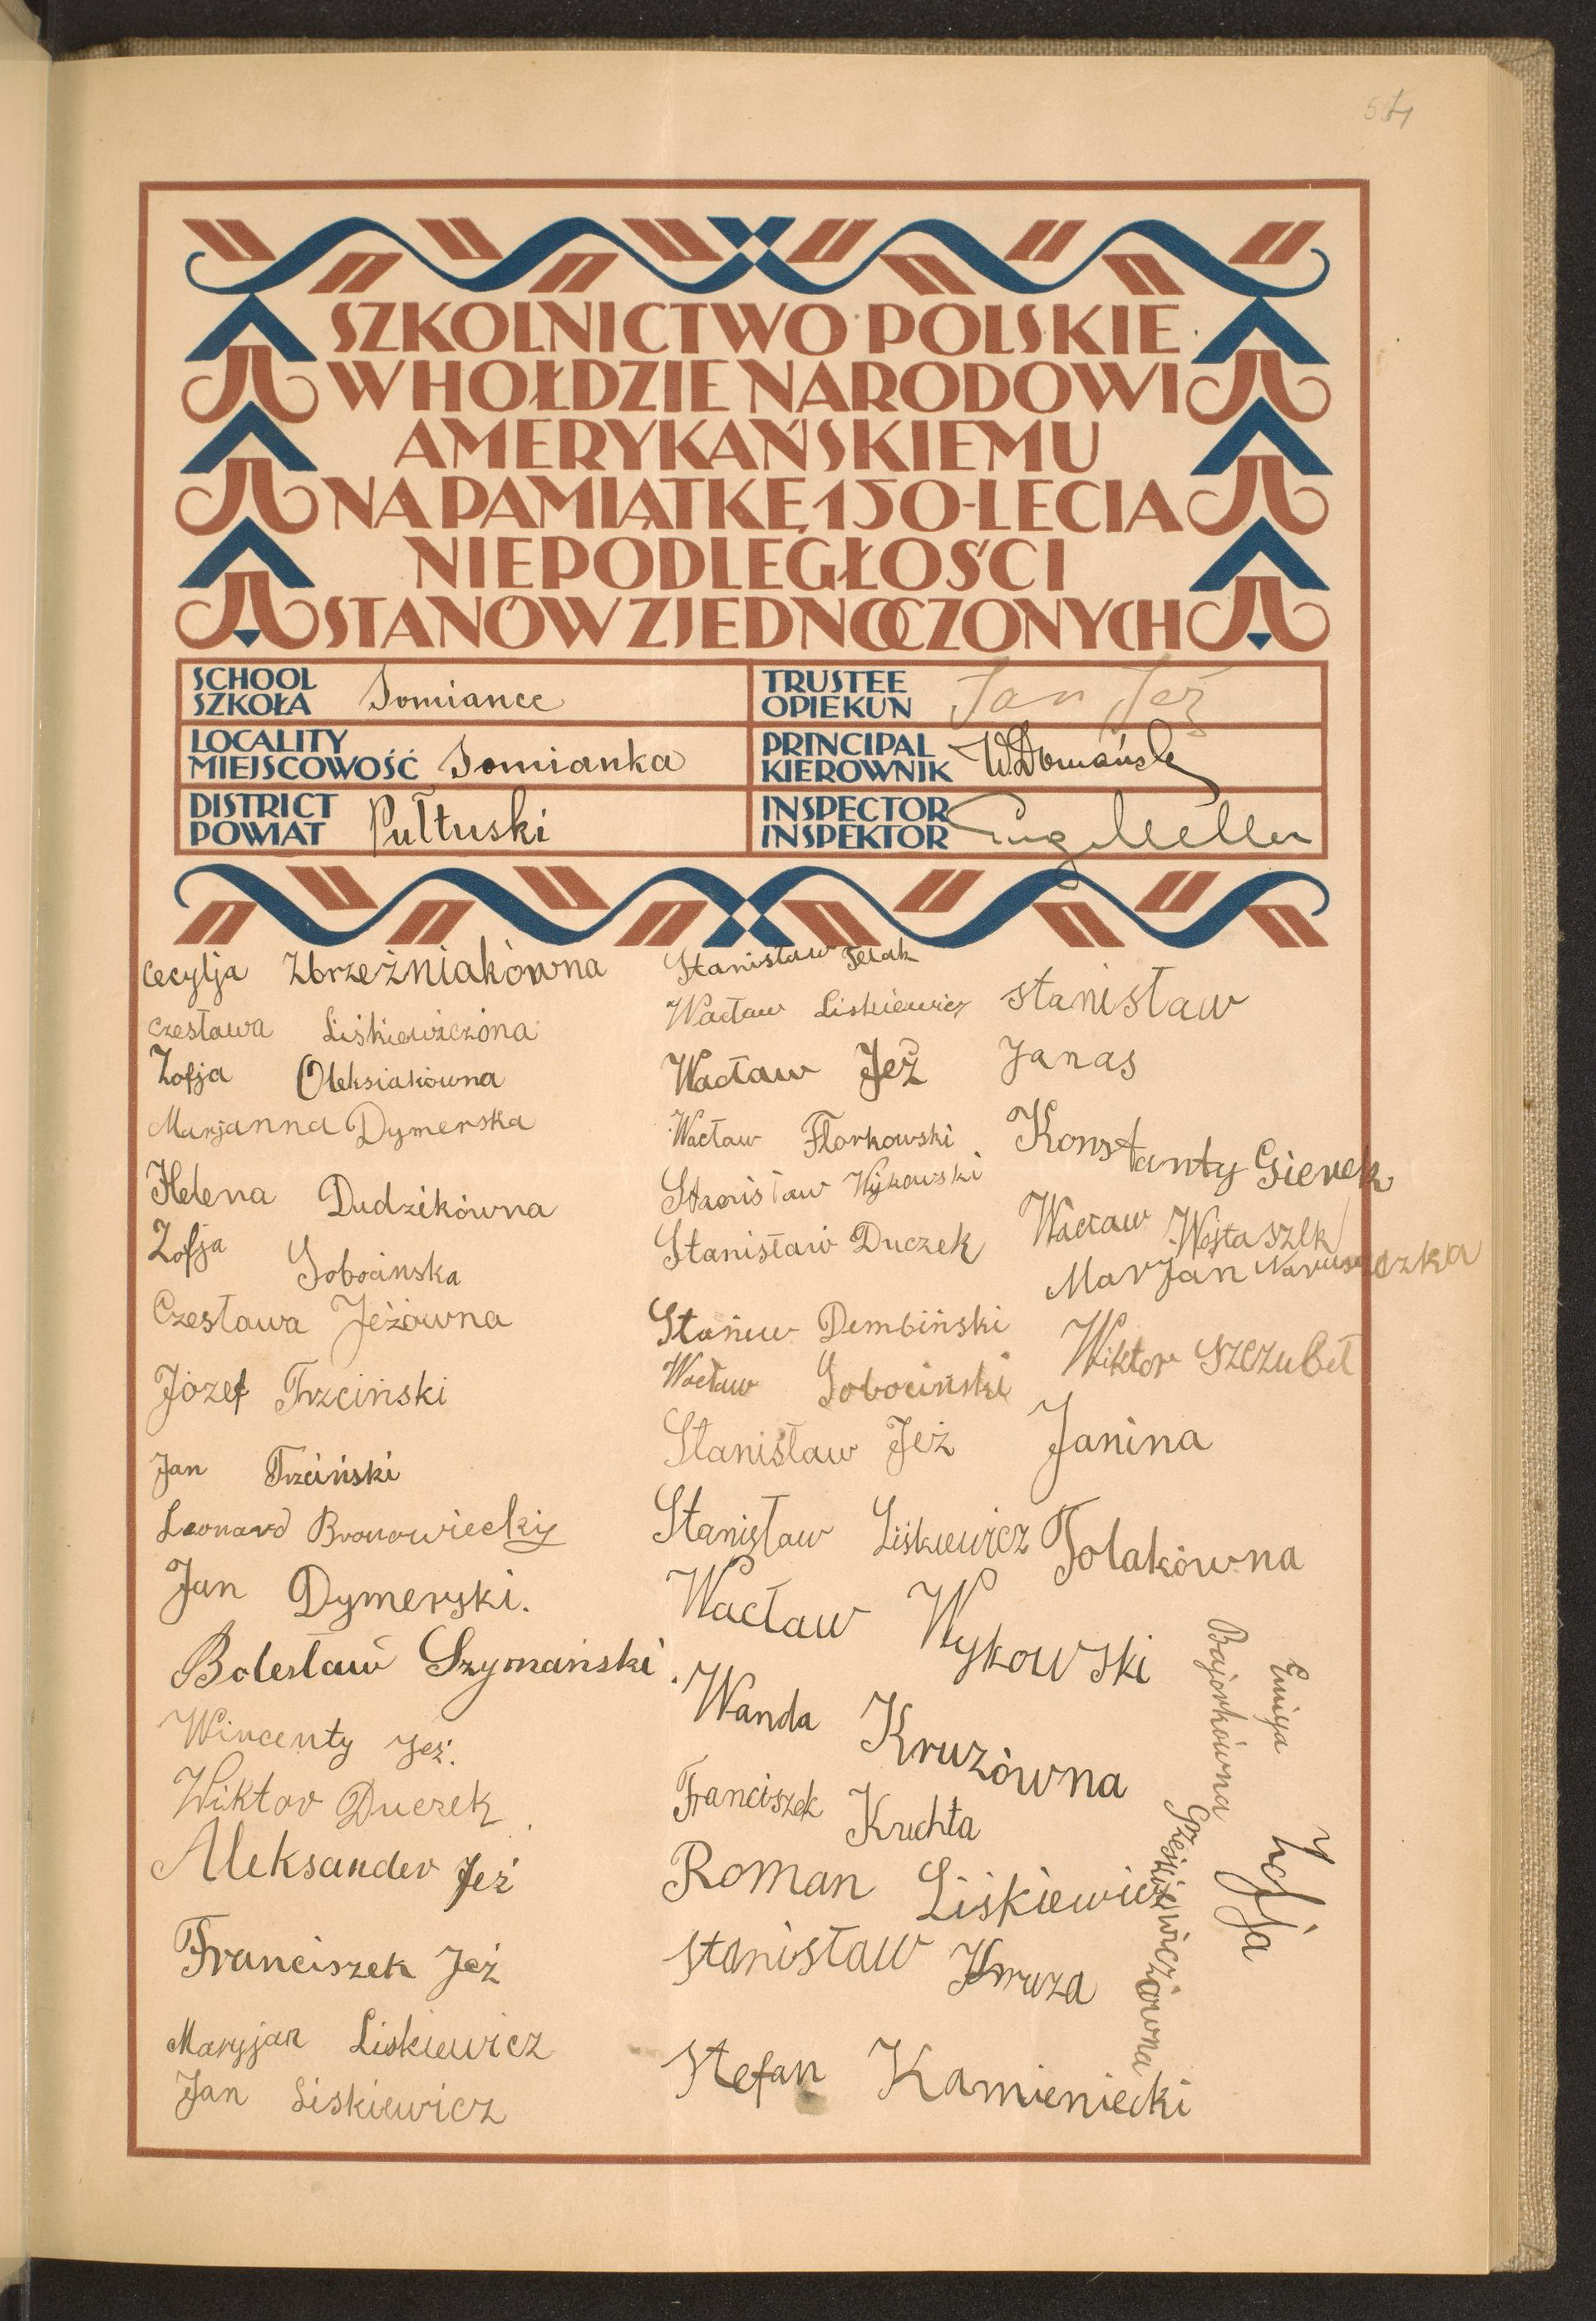 SZKOLNICTWO POLSKIE
W HOŁDZIE NARODOWI
AMERYKAŃSKIEMU
NA PAMIĄTKĘ 150-LECIA
NIEPODLEGŁOŚCI
STANÓW ZJEDNOCZONYCH
SCHOOL
SZKOŁA Somiance
TRUSTEE
OPIEKUN Jan Jeż
LOCALITY
MIEJSCOWOŚĆ Somianka
PRINCIPAL
KIEROWNIK W. Domański
DISTRICT
POWIAT Pułtuski
INSPECTOR
INSPEKTOR
Cecylja Zbrzeźniakówna
Czesława Liśkiewiczóna
Zofja Oleksiakówna
Marjanna Dymerska
Helena Dudzikówna
Zofja Sobocinska
Czesława Jeżówna
Józef Trzciński
Jan Trzciński
Leonard Bronowiecki
Jan Dymerski.
Bolesław Szymański.
Wincenty Jeż.
Wiktor Duczek
Aleksander Jeż
Franciszek Jeż
Maryjan Liskiewicz
Jan Liskiewicz
Stanisław
Wacław Liskiewicz
Wacław Jeż
Wacław Florkowski
Stanisław Wykowski
Stanisław Duczek
Dembiński
Wacław Sobociński
Stanisław Jeż
Stanisław Liśkiewicz
Wacław Wykowski
Wanda Kruzówna
Franciszek Kruchta
Roman Liśkiewicz
Stanisław Kruza
Stefan Kamieniecki
Stanisław
Janas
Konstanty Gierek
Wacław Wojtaszek
Marjan Naruszczka
Wiktor Szczubeł
Janina
Tolakówna
Bajorkówna
Zofja
Grześkiewiczówna